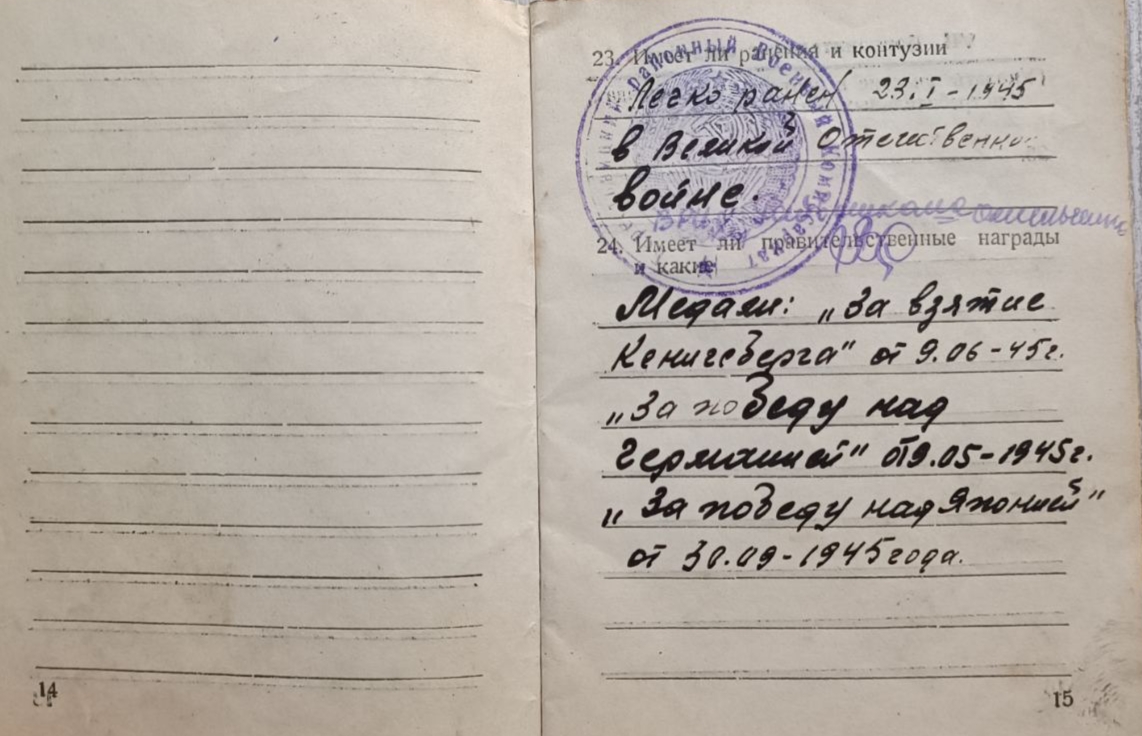 23. Имеет ли ранения и контузии
Легко ранен 23.I-1945
в Великой Отечественно
войне.
24. Имеет ли правительственные награды
и какие
Медали: „За взятие
Кенигсберга" от 9.06-45г.
„За победу над
Германией" от 9.05-1945г.
„За победу над Японией"
от 30.09-1945 года.
районный военный комиссариат
14
15